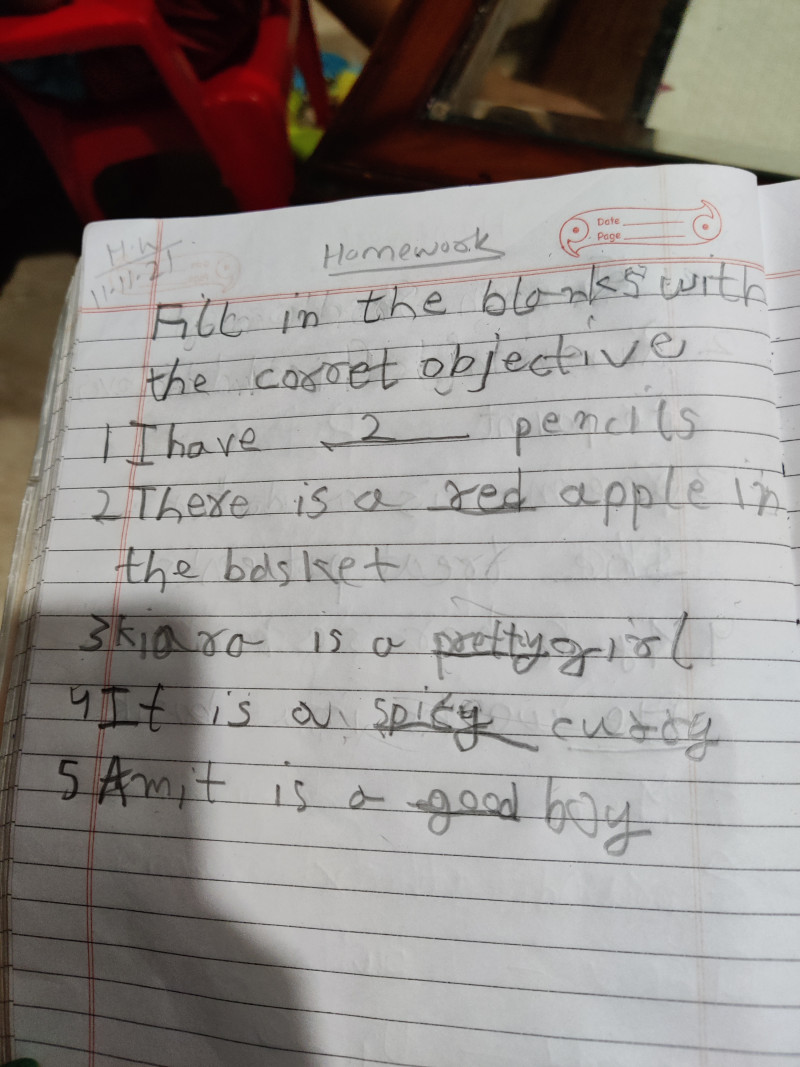 H.W
11.11.21
Homework
Date
Page
Fill in the blanks with
the corret objective
1 I have 2 pencils
2 There is a red apple in
the basket
3 Kiara is a pretty girl
4 It is a spicy curry
5 Amit is a good boy